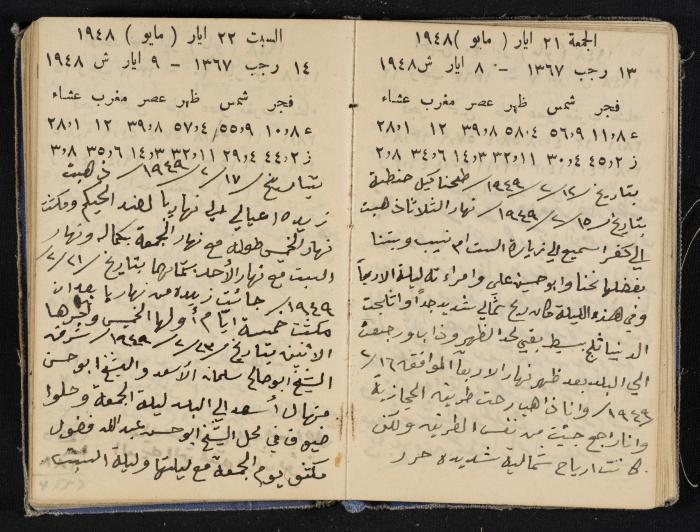 الجمعة ٢١ ايار ( مايو ) ١٩٤٨
١٣ رجب ١٣٦٧ - ٨ ايار ش ١٩٤٨
فجر شمس ظهر عصر مغرب عشاء
ع ١١،٨ ٥٦،٩ ٥٨،٤ ٣٩،٨ ١٢ ٢٨،١
ز ٤٥،٢ ٣٠،٤ ٣٢،١١ ١٤،٣ ٣٤،٦ ٢،٨
بتاريخ /١٢/ ٢/ ١٩٤٩/ طحنا كيل حنطة
بتاريخ /١٥/ ٢/ ١٩٤٩/ نهار الثلاثا ذهبت
الي كفر اسميع الى زيارة الست ام نسيب وبتنا
بفضلها نحنا وابو حسين علي وامراءته ليلة الاربعا
وفي هذه الليلة كان ريح شمالي شديد جداً واثلجت
الدنيا ثلج بسيط بقي لحد الظهر وذاب ورجعت
الي البلد بعد ظهر نهار الاربعا الموافقه ١٦/ ٢
١٩٤٩/ وانا ذاهب رحت طريقه الحيازية
وانا راجع جيت من نفس الطريقه ولكن
كانت ارياح شمالية شديده حرر
السبت ٢٢ ايار ( مايو ) ١٩٤٨
١٤ رجب ١٣٦٧ - ٩ ايار ش ١٩٤٨
فجر شمس ظهر عصر مغرب عشاء
ع ١٠،٨ ٥٥،٩ ٥٧،٤ ٣٩،٨ ١٢ ٢٨،١
ز ٤٤،٢ ٢٩،٤ ٣٢،١١ ١٤،٣ ٣٥،٦ ٣،٨
بتاريخ /١٧/ ٢/ ١٩٤٩/ ذهبت
زيده اعيالي الى نهاريا لعند الحكيم ومكثت
نهار الخميس طوله مع نهار الجمعة بكماله ونهار
السبت مع نهار الأحد بتاريخ ٢١/ ٢/
١٩٤٩/ جائت زيده من نهاريا بعد ان
مكثت خمسة ايّام أولها الخميس وآخرها
الاثنين بتاريخ /٢٣/ ٢/ ١٩٤٩/ شرفه
الشيخ ابو صالح سلمان الأسعد والشيخ ابو حسن
منهال أسعد الى البلد ليلة الجمعة وحلوا
ضيوفا في محل الشيخ ابو حسن عبدالله فضول
مكثو يوم الجمعة مع ليلتها وليلة السبت